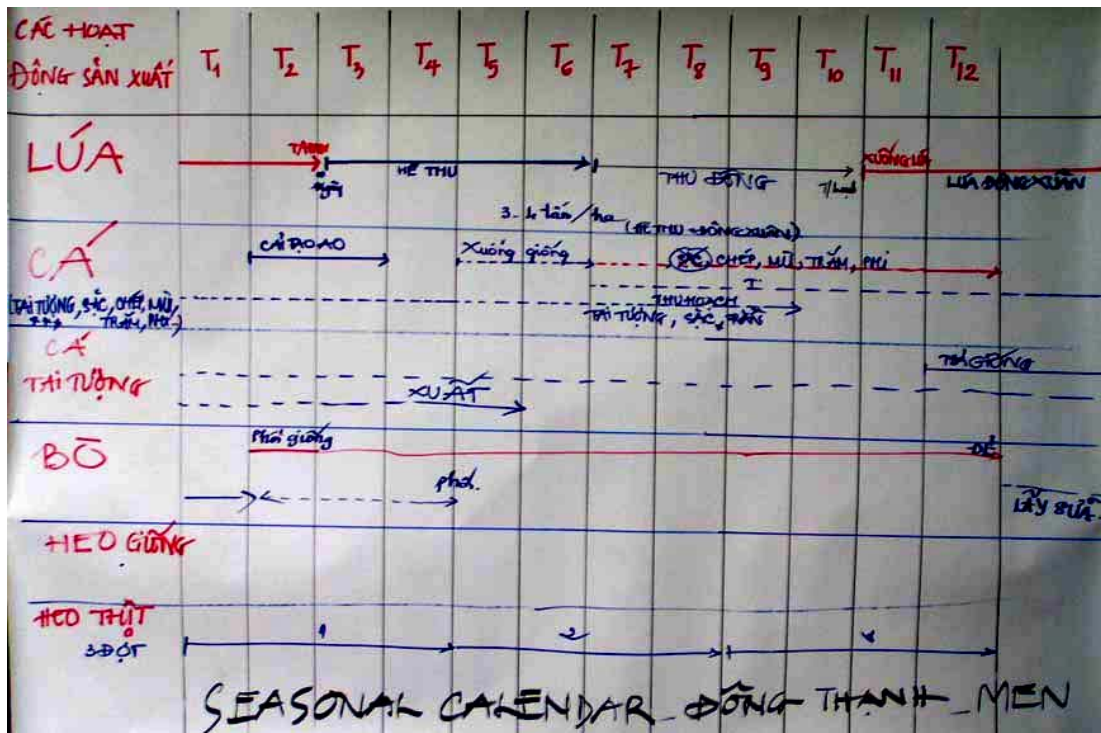 CÁC HOẠT
ĐỘNG SẢN XUẤT
T1 T2 T3 T4 T5 T6 T7 T8 T9 T10 T11 T12
LÚA
HÈ THU
THU ĐÔNG
XUỐNG LÚA
LÚA ĐÔNG XUÂN
3-4 tấn/ha (HÈ THU - ĐÔNG XUÂN)
CÁ
CẢI TẠO AO
Xuống giống
SẶC, CHÉP, MÙ, TRẮM, PHI
I
(TAI TƯỢNG, SẶC, CHÉP, MÙ,
TRẮM, PHI)
THU HOẠCH
TAI TƯỢNG, SẶC, TRẮM
CÁ
TAI TƯỢNG
THẢ GIỐNG
XUẤT
BÒ
Phối giống
ĐẺ
phối.
LẤY SỮA
HEO GIỐNG
HEO THỊT
3 ĐỢT
1 2
SEASONAL CALENDAR_ĐÔNG THẠNH_MEN